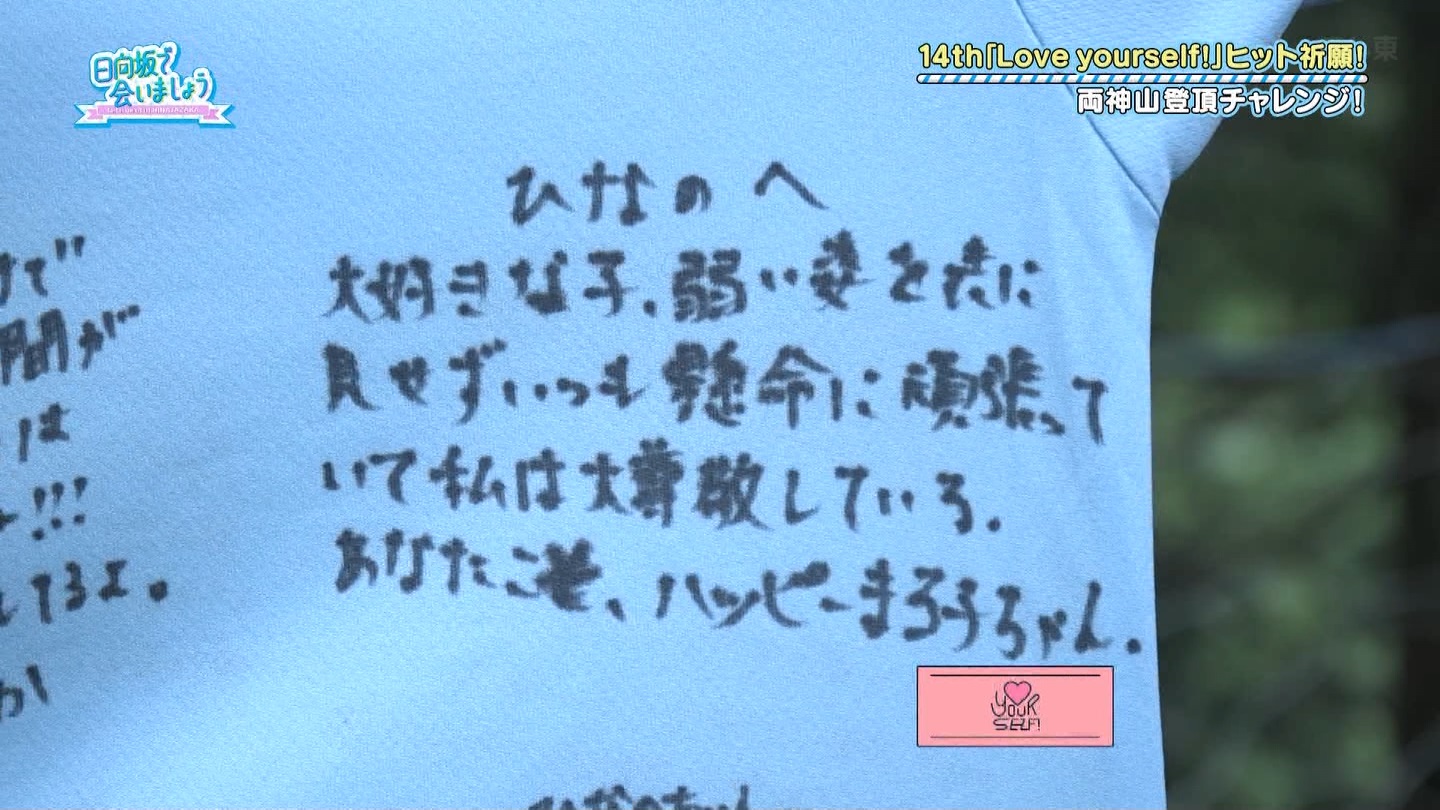 日向坂で
会いましょう
14th「Love yourself!」ヒット祈願!
両神山登頂チャレンジ!
東
ひなのへ
大好きな子、弱い姿を表に
見せずいつも懸命に頑張って
いて私は大尊敬している。
あなたこそ、ハッピーまる子ちゃん。
で
間が
は
!!!
てるよ。
か
YOUR
SELF!